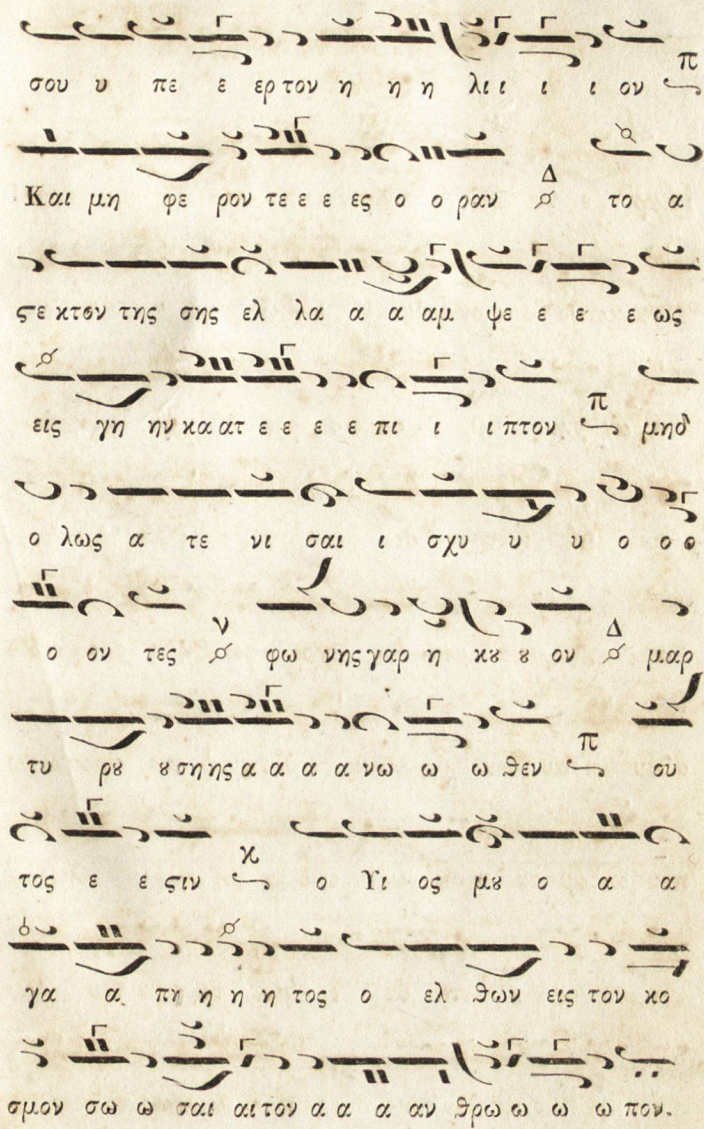 σου υ πε ε ερ τον η η η λι ι ι ι ον π
Και μη φε ρον τε ε ε ες ο ο ραν Δ το α
ϛε κτον της σης ελ λα α α αμ ψε ε ε ε ως
εις γη ην κα ατ ε ε ε ε πι ι ι πτον π μηδ'
ο λως α τε νι σαι ι σχυ υ υ ο ο ο
ο ον τες ν φω νης γαρ η κȣ ȣ ον Δ μαρ
τυ ρȣ ȣ ση ης α α α α νω ω ω θεν π ου
τος ε ε ϛιν κ ο Υι ος μȣ ο α α
γα α πη η η η τος ο ελ θων εις τον κο
σμον σω ω σαι αι τον α α α αν θρω ω ω ω πον.